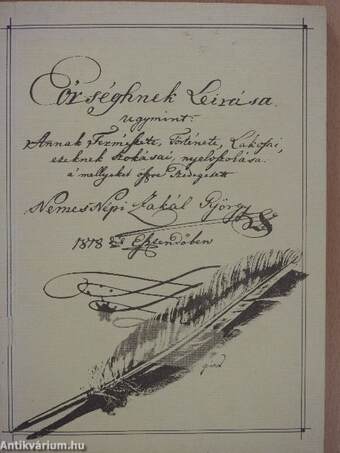 Eörséghnek Leirása
ugymint:
Annak Fekvése, Története, Lakosai,
ezeknek szokásai, nyelvszokása
a' mellyeket öszve szedegetett
Nemes Népi Zakál György
1818 dik Esztendőben
Antikvárium.hu